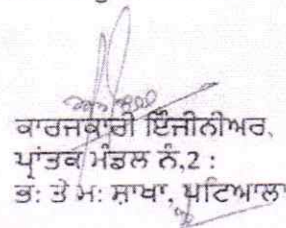 ਕਾਰਜਕਾਰੀ ਇੰਜੀਨੀਅਰ,
ਪ੍ਰਾਂਤਕ ਮੰਡਲ ਨੰ.2 :
ਭ: ਤੇ ਮ: ਸ਼ਾਖਾ, ਪਟਿਆਲਾ